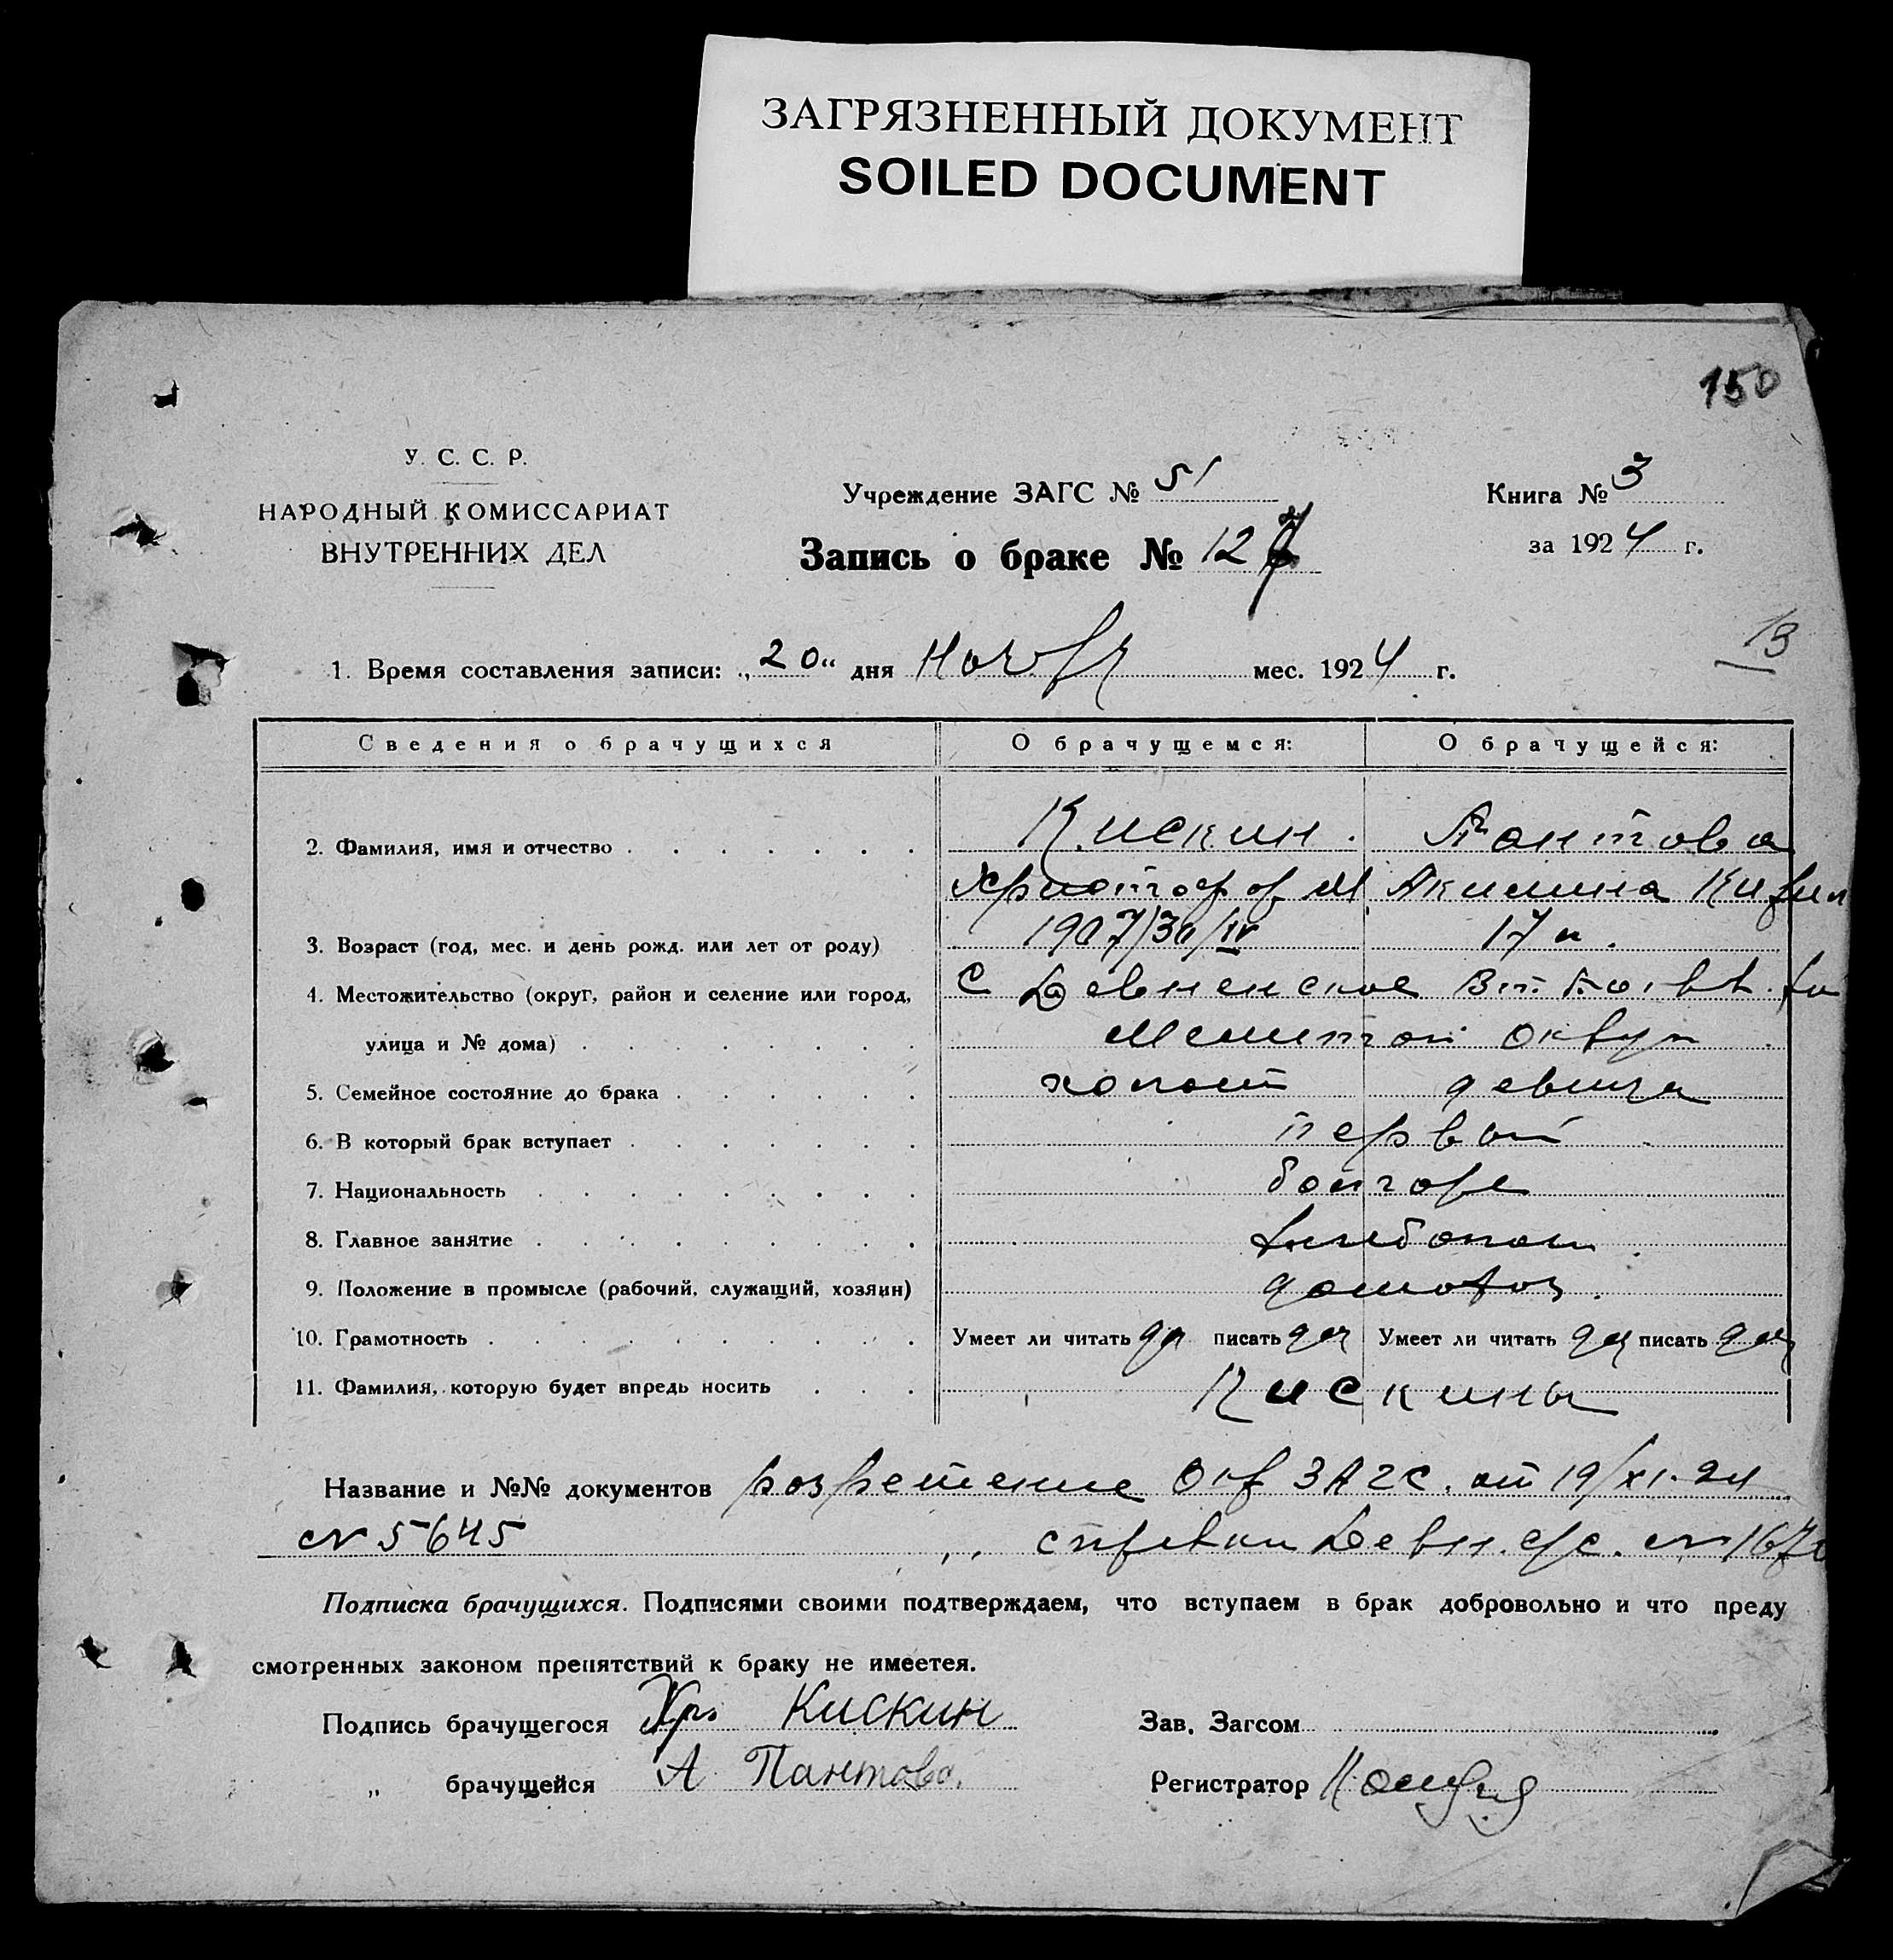 ЗАГРЯЗНЕННЫЙ ДОКУМЕНТ
SOILED DOCUMENT
150
У. С. С. Р.
НАРОДНЫЙ КОМИССАРИАТ
ВНУТРЕННИХ ДЕЛ
Учреждение ЗАГС № 51
Запись о браке № 127
Книга № 3
за 1924 г.
13
1. Время составления записи: „20“ дня Ноября мес. 1924 г.
Сведения о брачущихся О брачущемся: О брачущейся:
2. Фамилия, имя и отчество Кискин. Пантова
Христофор М Акилина
3. Возраст (год, мес. и день рожд. или лет от роду) 1907/30/IV 17 л.
4. Местожительство (округ, район и селение или город, С Девненское
улица и № дома) Мелитоп Округ
5. Семейное состояние до брака холост девица
6. В который брак вступает первый
7. Национальность болгоре
8. Главное занятие хлебопаш
9. Положение в промысле (рабочий, служащий, хозяин) домохоз.
10. Грамотность Умеет ли читать да писать да Умеет ли читать да писать да
11. Фамилия, которую будет впредь носить Кискины
Название и №№ документов розрешение Окр ЗАГС. от 19/XI-24
№ 5645 „ справки Девн. с/с. №
Подписка брачущихся. Подписями своими подтверждаем, что вступаем в брак добровольно и что преду
смотренных законом препятствий к браку не имеетея.
Подпись брачущегося Хр. Кискин Зав. Загсом
„ брачущейся А Пантова. Регистратор